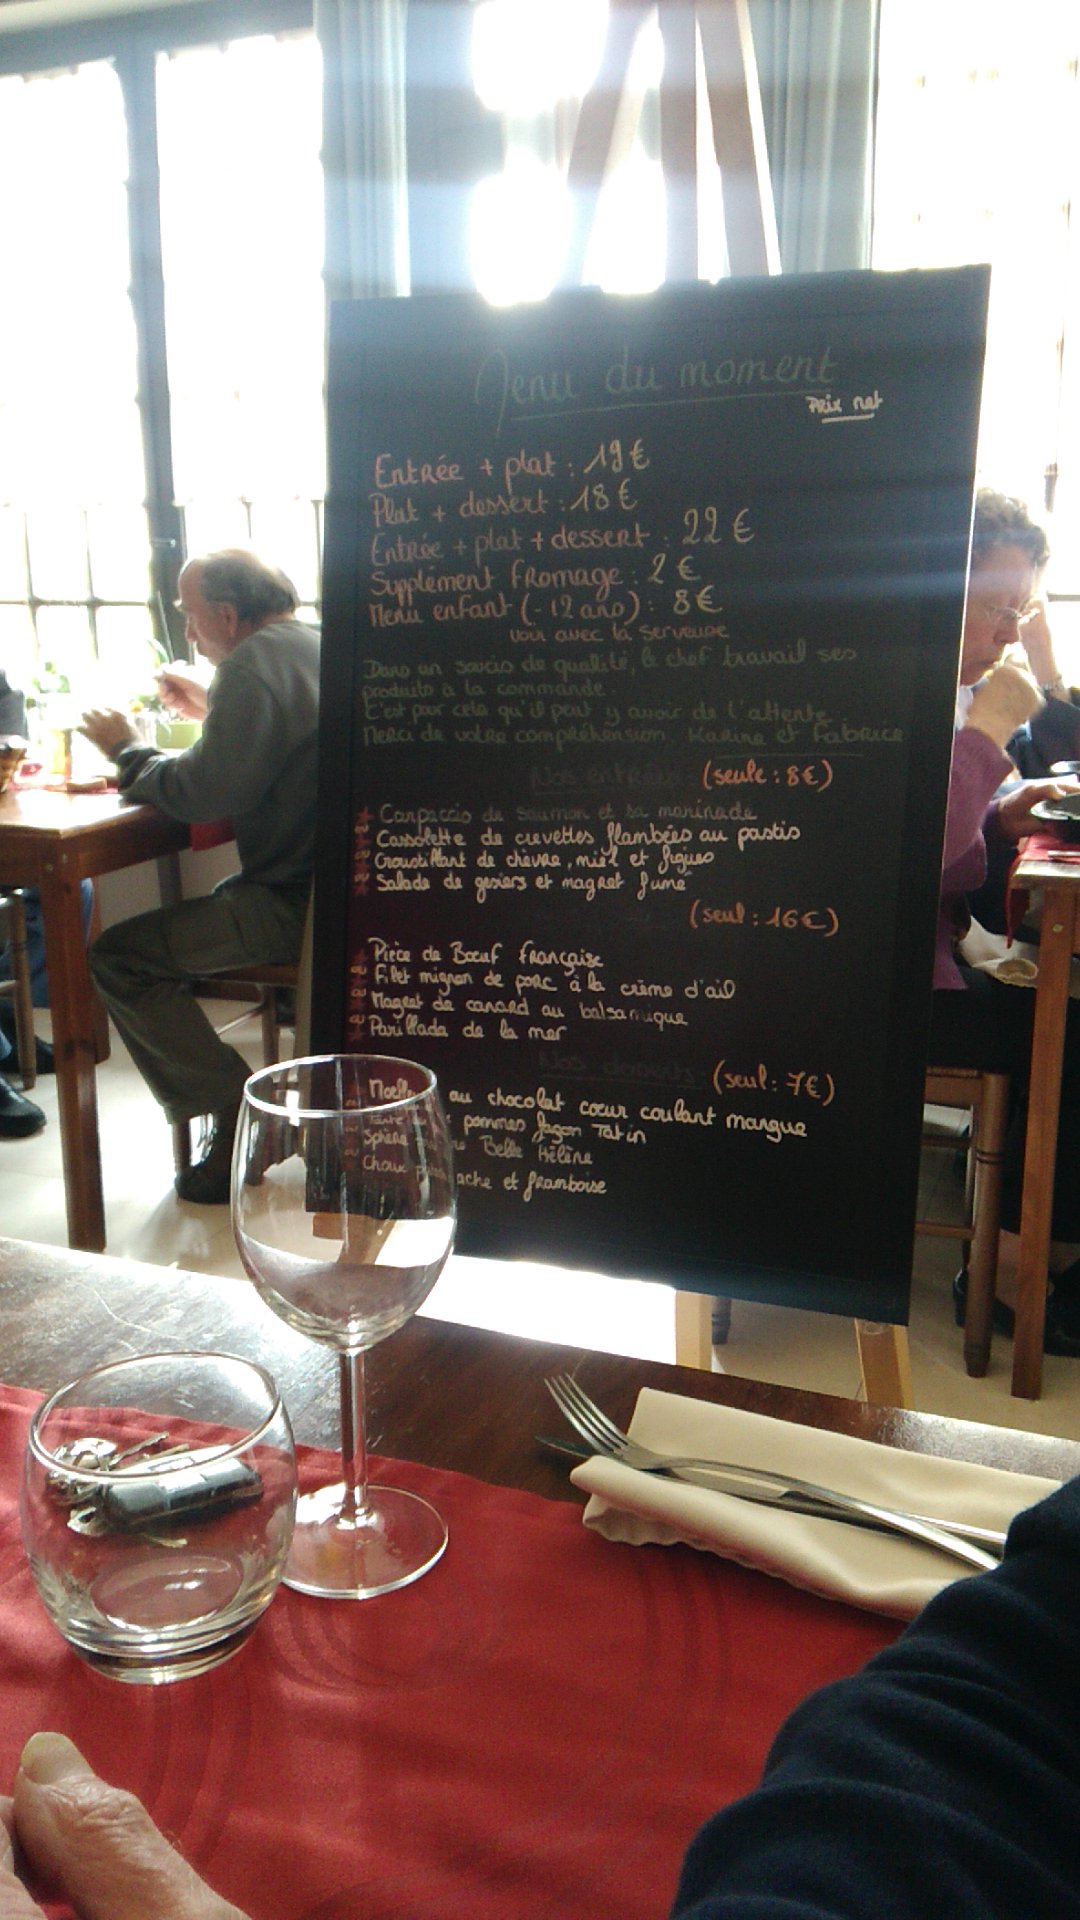 Menu du moment
Prix net
Entrée + plat : 19€
Plat + dessert : 18€
Entrée + plat + dessert : 22€
Supplément fromage : 2€
Menu enfant (- 12 ans) : 8€
voir avec la serveuse
Dans un soucis de qualité, le chef travail ses
produits à la commande.
C'est pour cela qu'il peut y avoir de l'attente
Merci de votre compréhension. Karine et Fabrice
Nos entrées (seule : 8€)
Carpaccio de saumon et sa marinade
ou Cassolette de crevettes flambées au pastis
ou Croustillant de chèvre, miel et figues
ou Salade de gesiers et magret fumé
(seul : 16€)
Pièce de Boeuf Française
ou Filet mignon de porc à la crème d'ail
ou Magret de canard au balsamique
ou Parillada de la mer
Nos desserts (seul : 7€)
Moelleux au chocolat coeur coulant mangue
pommes façon Tatin
ou Sphère Belle Hélène
ou Choux et framboise